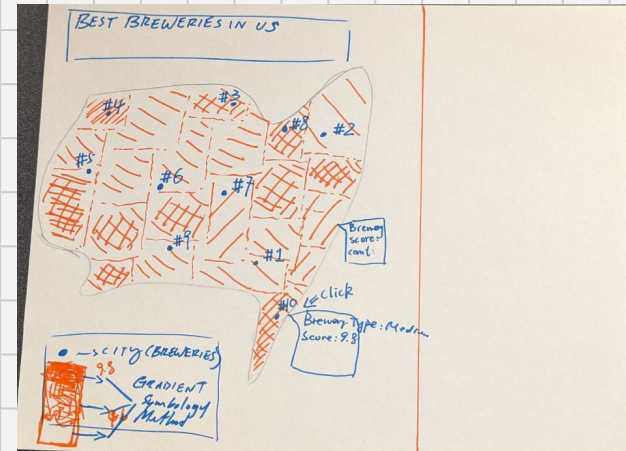 BEST BREWERIES IN US
#3
#4
#8
#2
#5
#6
#7
Brewery
score:
#9
#1
#10
Click
Brewery Type: Medium
Score: 9.8
CITY (BREWERIES)
9.8
GRADIENT
Symbology
Method